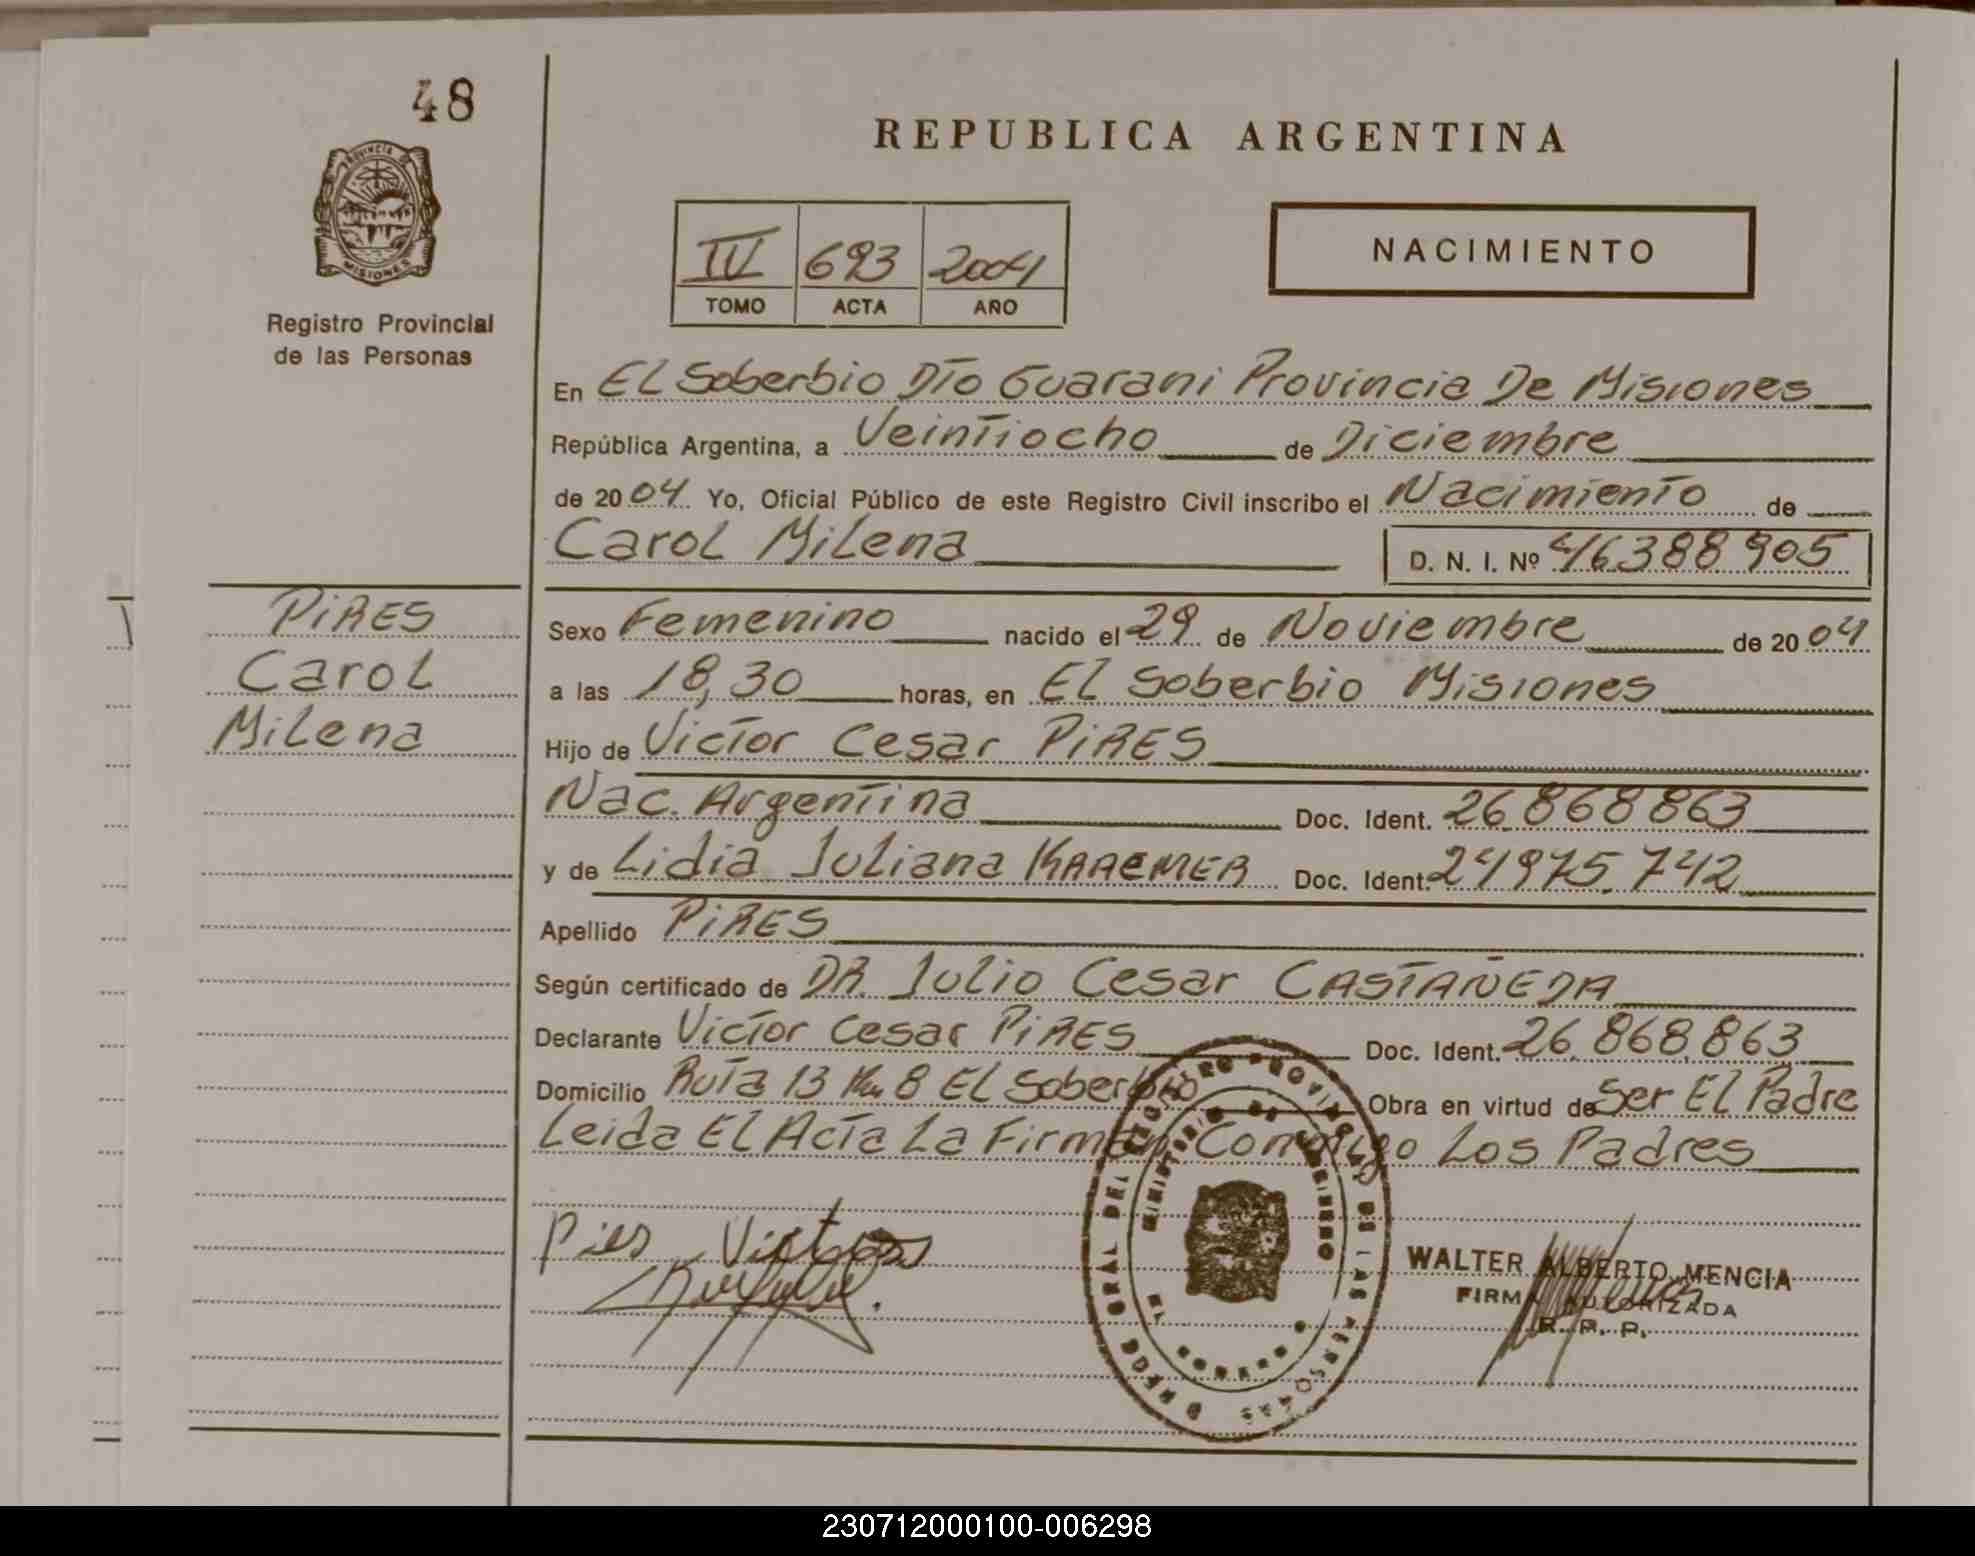 48
PROVINCIA DE
MISIONES
Registro Provincial
de las Personas
REPUBLICA ARGENTINA
IV 693 2004
TOMO ACTA AÑO
NACIMIENTO
En El Soberbio Dto Guarani Provincia De Misiones
República Argentina, a Veintiocho de Diciembre
de 2004 Yo, Oficial Público de este Registro Civil inscribo el Nacimiento de
Carol Milena D. N. I. Nº 46388905
PIRES
Carol
Milena
Sexo Femenino nacido el 29 de Noviembre de 2004
a las 18,30 horas, en El Soberbio Misiones
Hijo de Victor Cesar PIRES
Nac. Argentina Doc. Ident. 26.868863
y de Lidia Juliana KRAEMER Doc. Ident. 24975.742
Apellido PIRES
Según certificado de DR. Julio Cesar CASTAÑEDA
Declarante Victor Cesar PIRES Doc. Ident. 26.868.863
Domicilio Ruta 13 Km 8 El Soberbio Obra en virtud de Ser El Padre
Leida El Acta La Firman Conmigo Los Padres
Pires Victor
WALTER ALBERTO MENCIA
FIRMA AUTORIZADA
R. P. P.
230712000100-006298